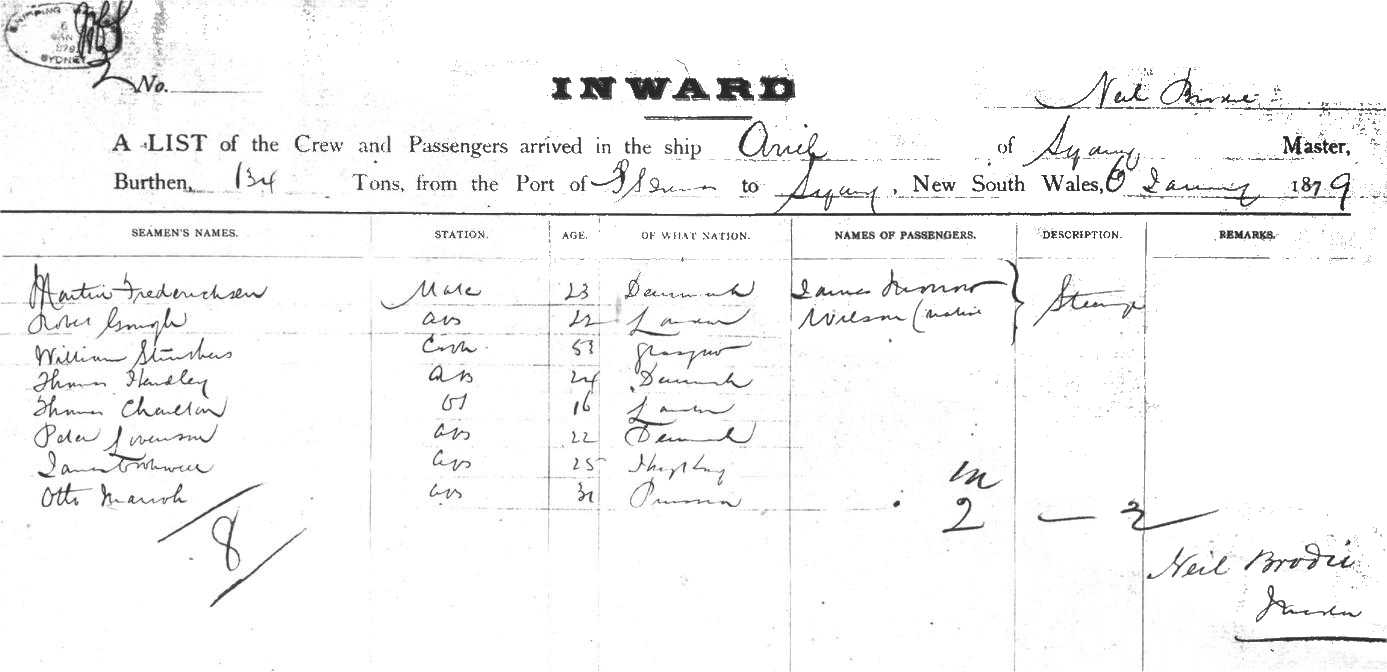 SHIPPING
6
JAN
1879
SYDNEY
No.
INWARD
Neil Brodie
A LIST of the Crew and Passengers arrived in the ship Ariel of Sydney Master,
Burthen, 134 Tons, from the Port of to Sydney, New South Wales, 6 January 1879
SEAMEN'S NAMES. STATION. AGE. OF WHAT NATION. NAMES OF PASSENGERS. DESCRIPTION. REMARKS.
Martin Frederichsen Mate 23 Denmark James
Robt Gough ABS 22 London Wilson (native Steerage
William Cook 53 Glasgow
Thomas Handley ABS 24 Denmark
Thomas Charlton OS 16 London
Peter Sorenson ABS 22 Denmark
James ABS 25
Otto ABS 31 Prussia
8
in
2 — 2
Neil Brodie
Master